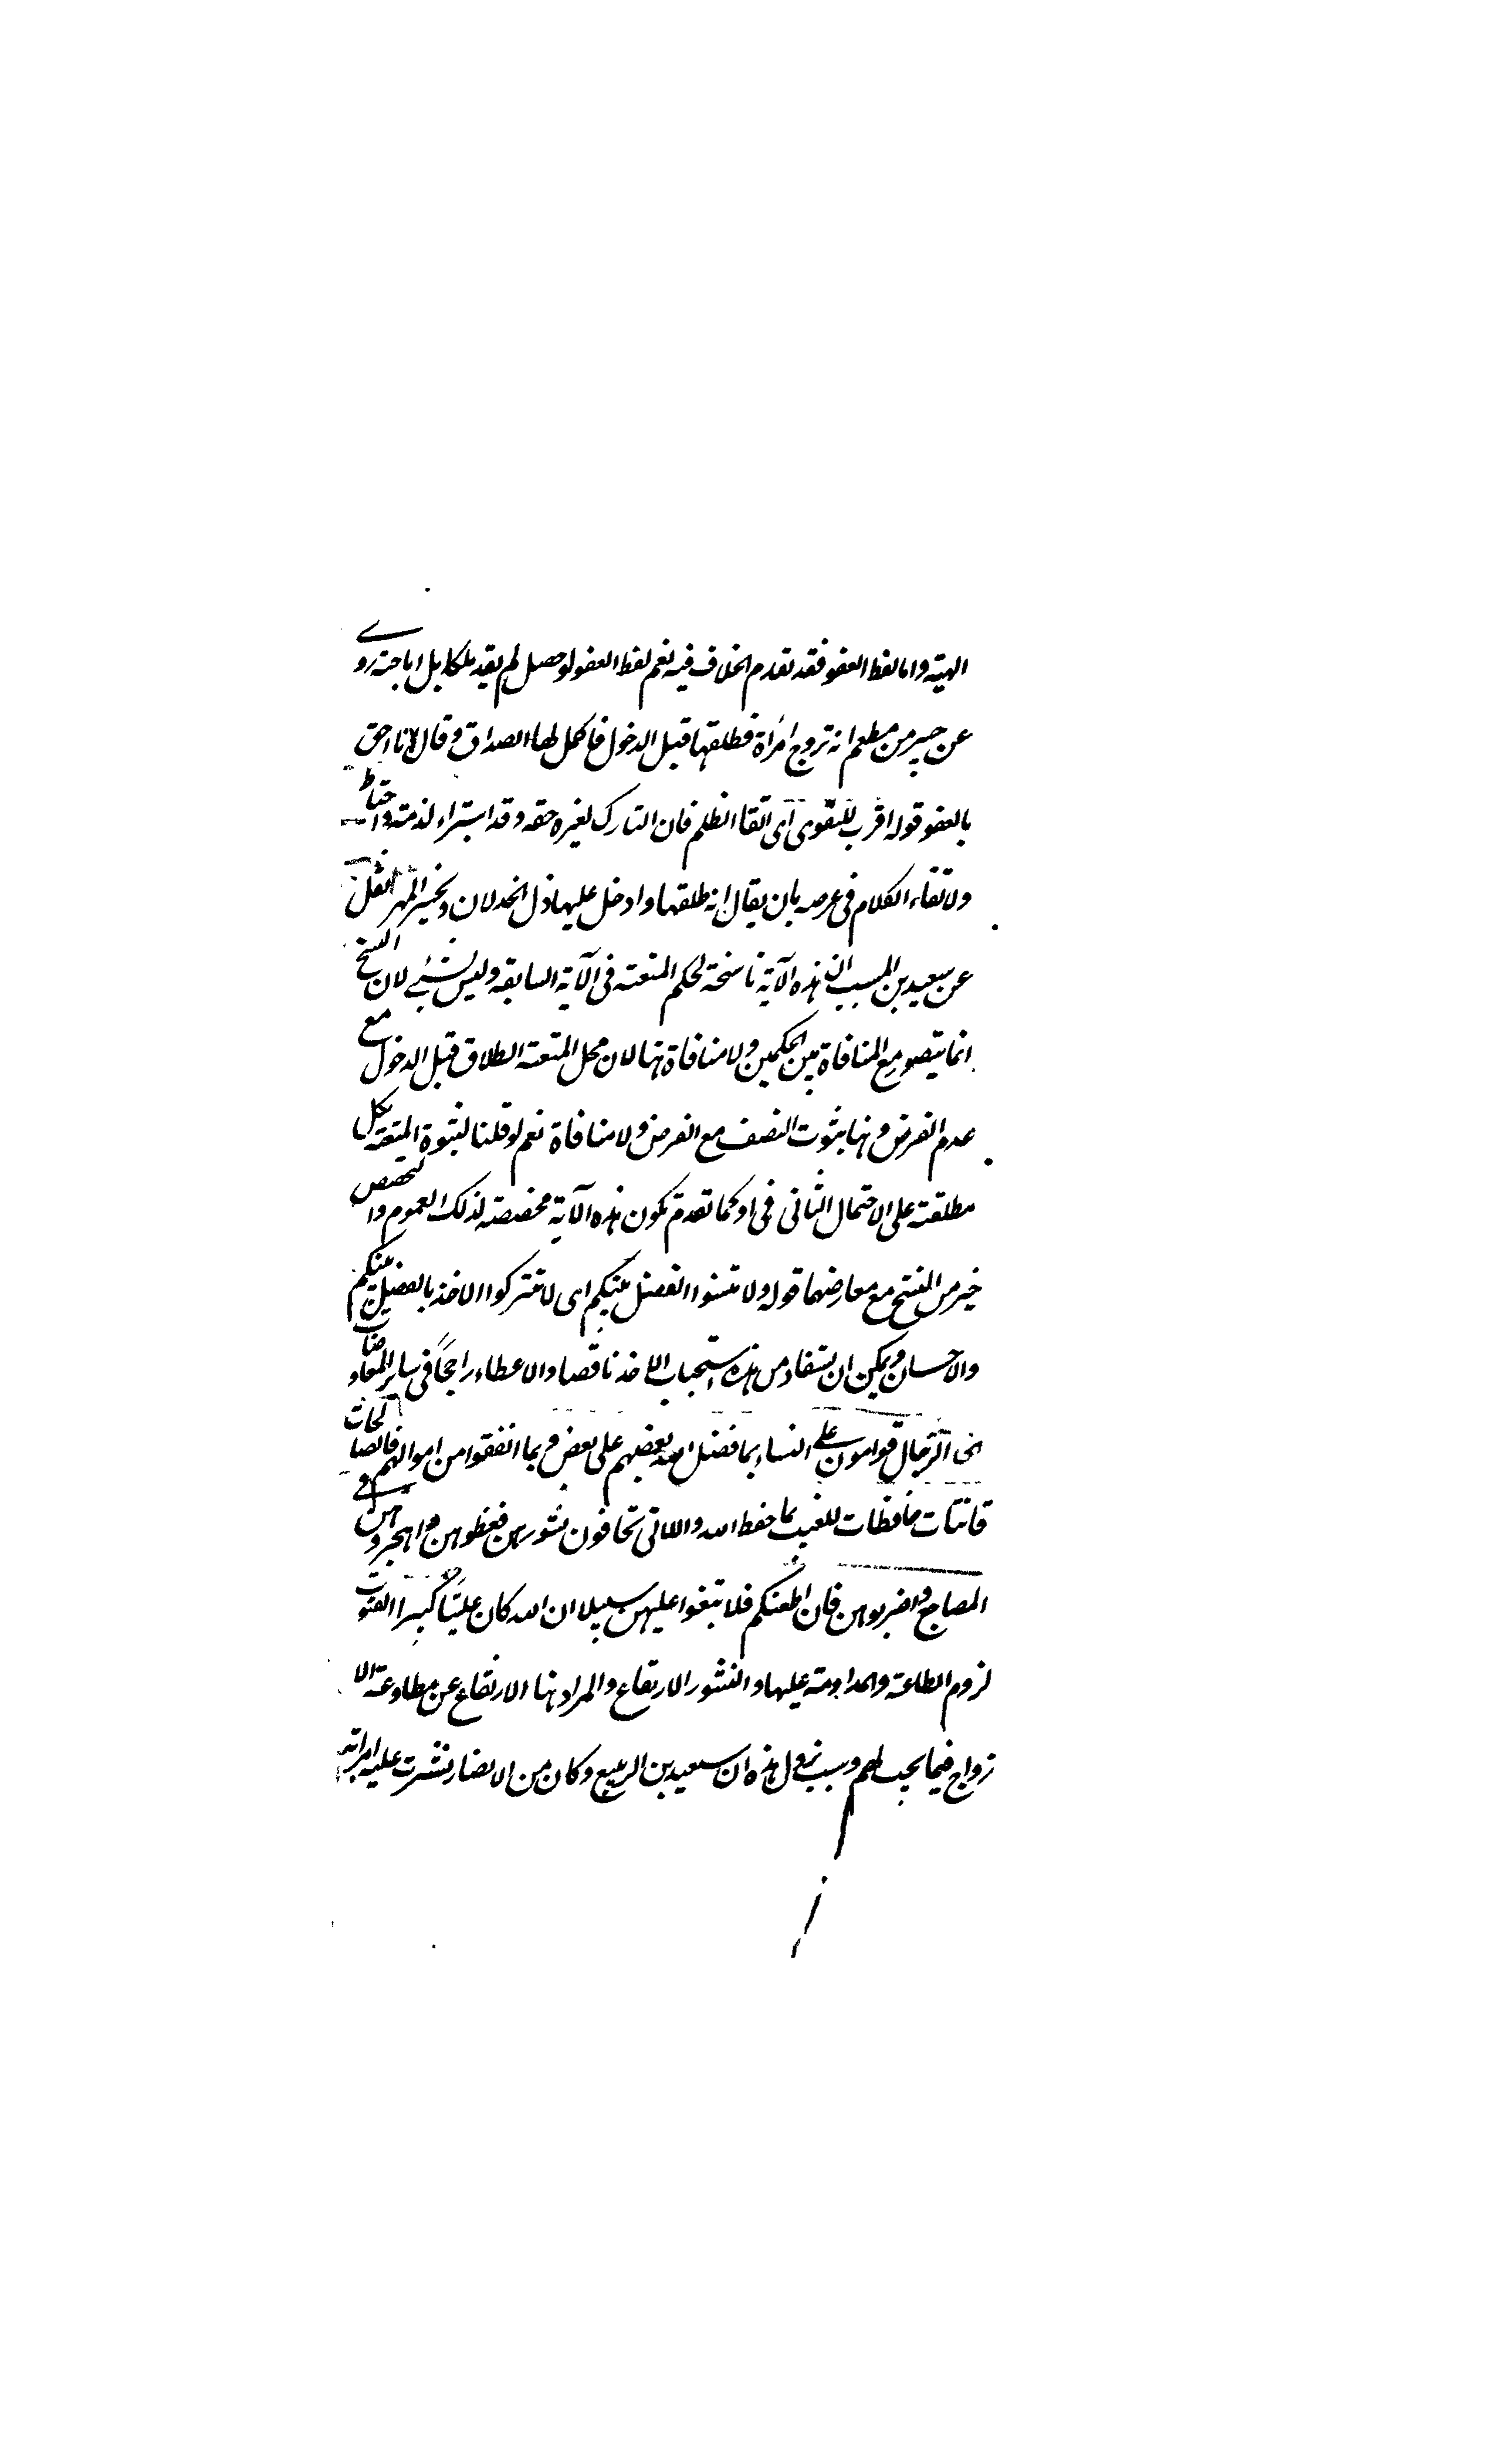 الهبة واما لفظ العفو فقد تقدم الخلاف فيه نعم لفظ العفو لو حصل لم يفد ملكا بل اباحة روى
عن جبير من مطعم انه تزوج امرأة فطلقها قبل الدخول فاكمل لها الصداق وقال انا احق
بالعفو قوله اقرب للتقوى اى اتقا الظلم فان التارك لغيره حقه وقد استبراء لذمته واحتاط
ولاتقاء الكلام فى عرضه بان يقال انه طلقها وادخل عليها ذل الخذلان وبخس المهر نقل
عن سعيد بن المسيب ان هذه الآية ناسخة لحكم المتعة فى الآية السابقة وليس بشئ لان النسخ
انما يتصور مع المنافاة بين الحكمين ولا منافاة هنا لان محل المتعة الطلاق قبل الدخول مع
عدم الفرض وهنا بثوت النصف مع الفرض ولا منافاة نعم لو قلنا بثبوة المتعة لكل
مطلقة على الاحتمال الثانى فى او كما تقدم تكون هذه الآية مخصصة لذلك العموم والتخصيص
خير من النسخ مع معارضهما قوله ولا تنسوا الفضل بينكم اى لا تتركوا الاخذ بالفضل بينكم
والاحسان ويمكن ان يستفاد من هذه استحباب الاخذ ناقصا والاعطاء راجحاً فى ساير المعاوضات
الرجال قوامون على النساء بما فضل الله بعضهم على بعض وبما انفقوا من اموالهم فالصالحات
قانتات حافظات للغيب بما حفظ الله واللاتى تخافون نشوزهن فعظوهن واهجروهن فى
المضاجع واضربوهن فان اطعنكم فلا تبغوا عليهن سبيلا ان الله كان علياً كبيرا القنوت
لزوم الطاعة والمداومة عليها والنشوز الارتفاع والمراد هنا الارتفاع عن مطاوعة الا
زواج فيما يجب لهم وسبب نزول هذه ان سعيد بن الربيع وكان من الانصار نشزت عليه امراته